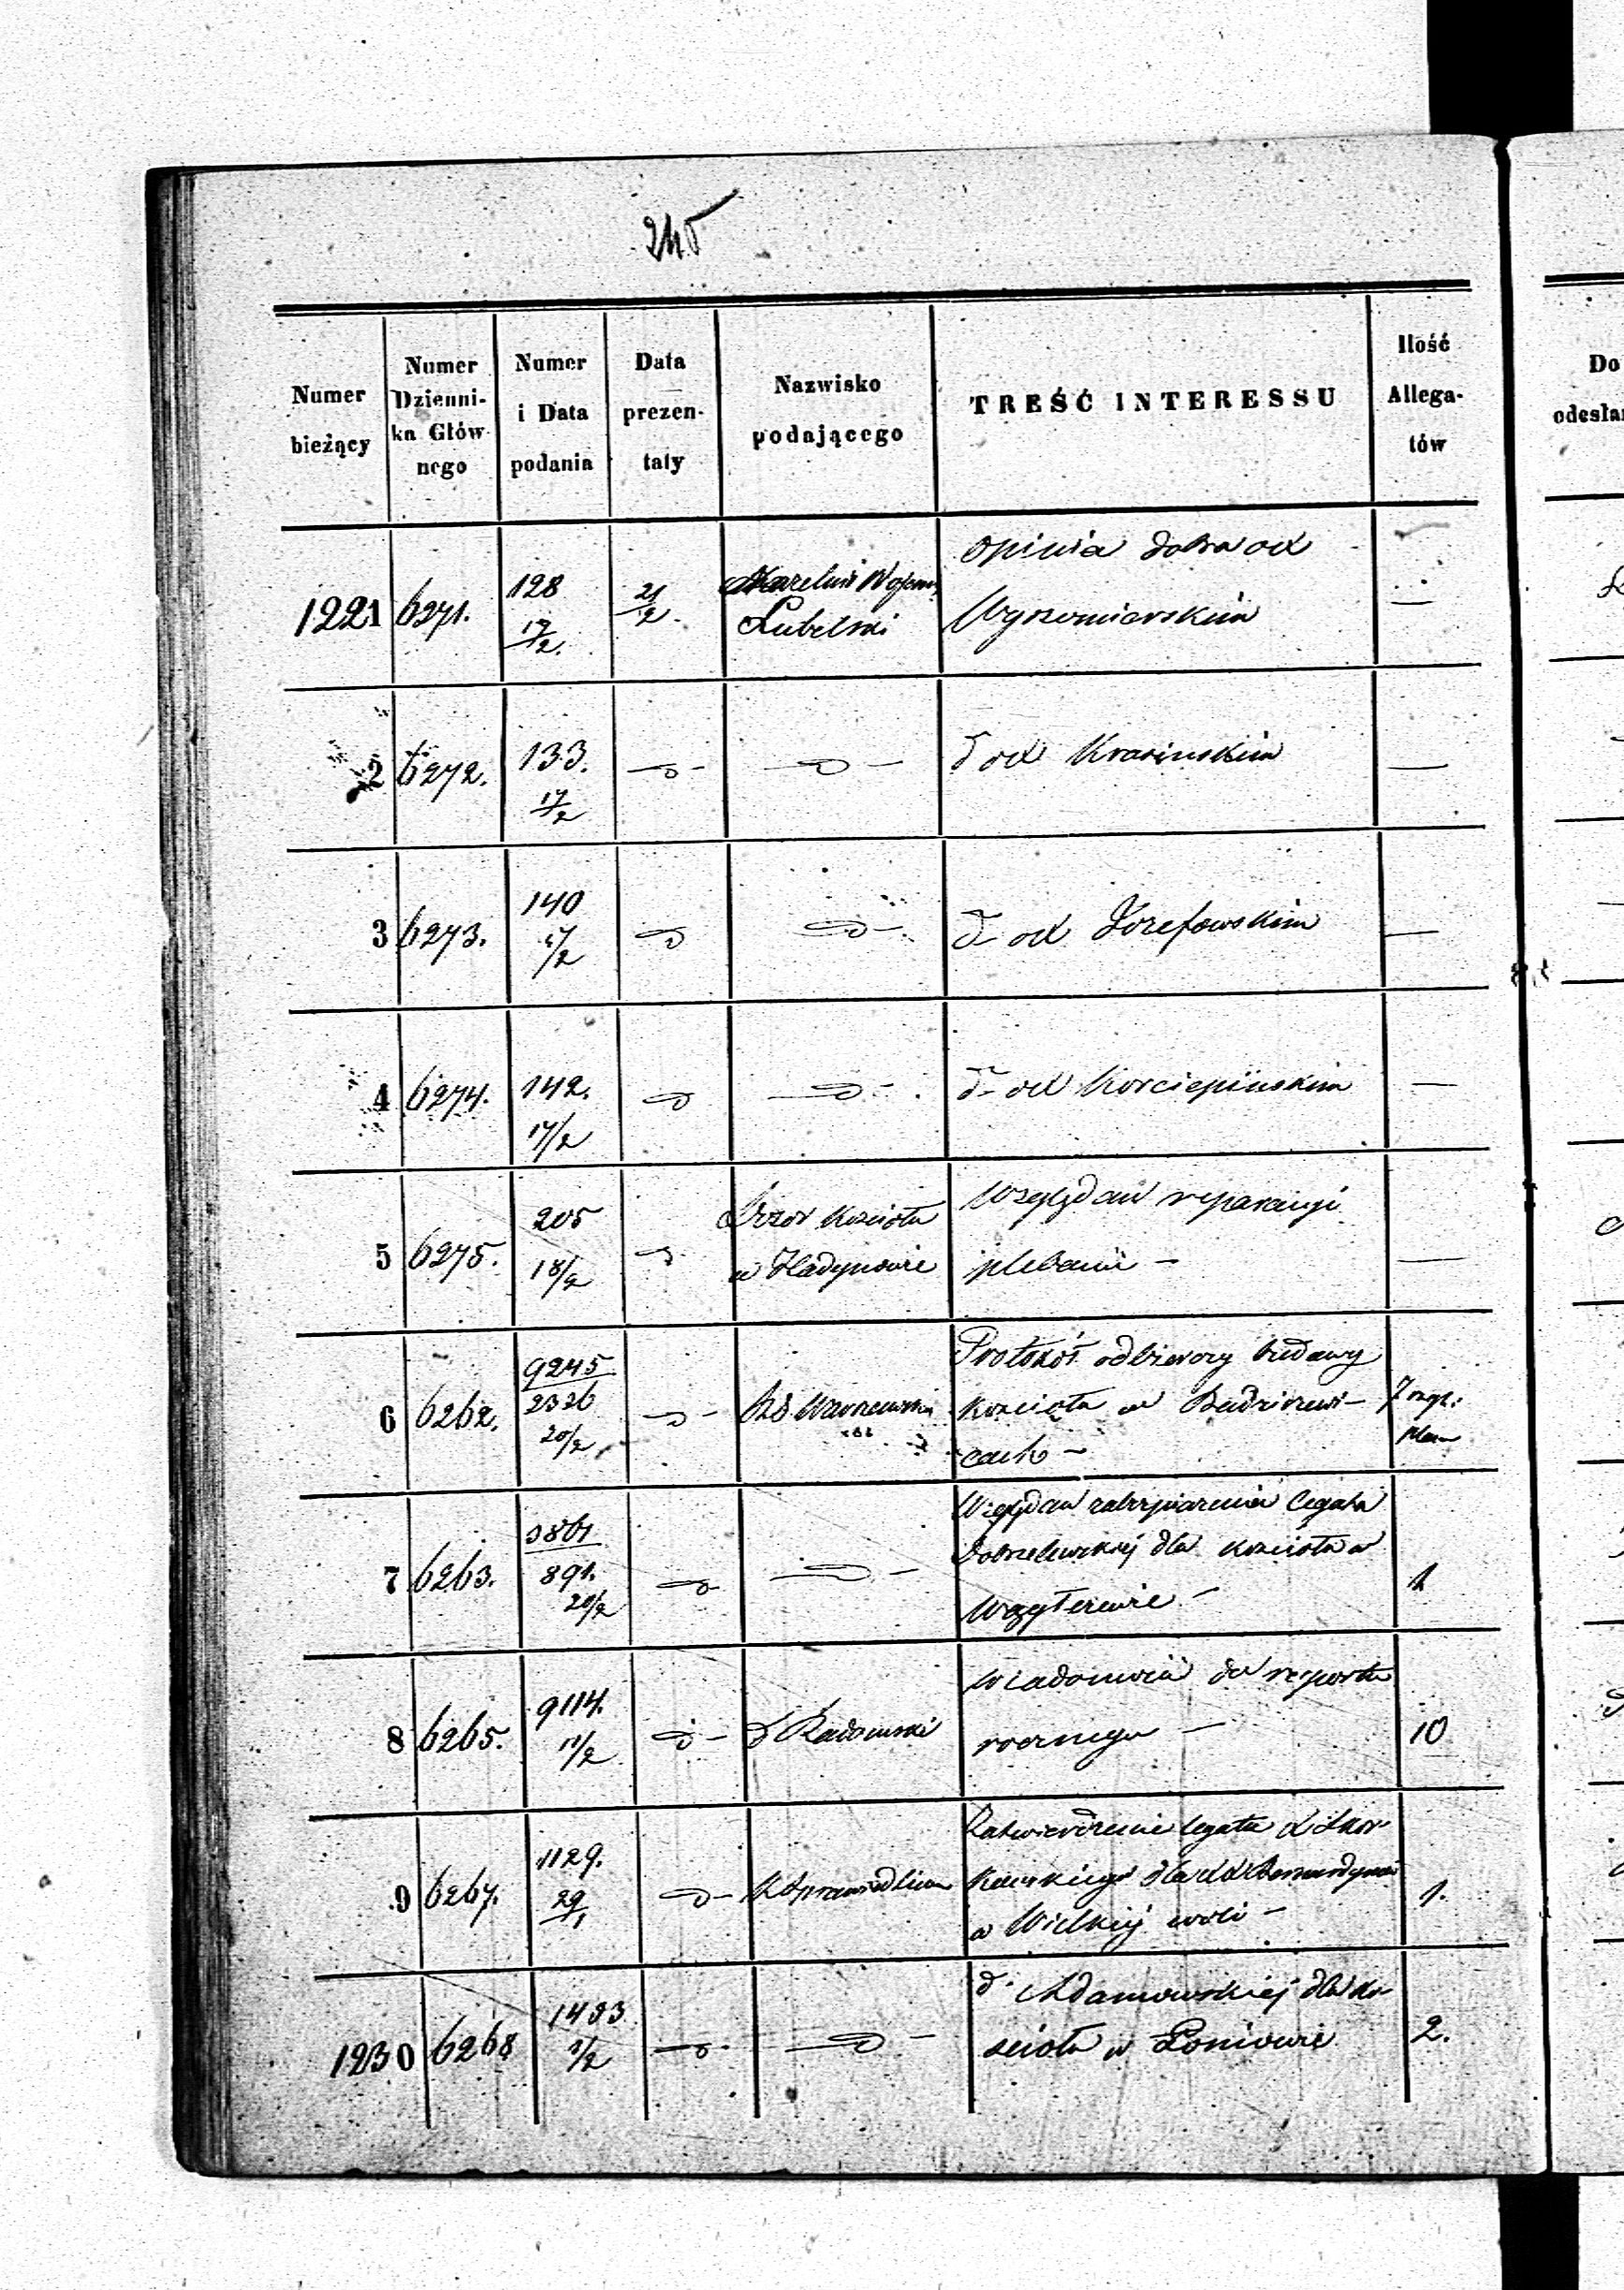 245
Numer bieżący
Numer Dzienni-ka Głów-nego
Numer i Data podania
Data prezen-taty
Nazwisko podającego
TREŚĆ INTERESSU
Ilość Allega-tów
Do
odesła
1221 6271. 128 17/2. 21/2. Naczelnik Wojenny Lubelski
Opinia dobra od
Wyszomierskim
—
2 6272. 133. 17/2
d od Krasinskim —
3 6273. 140 17/2
d- od Jozefowskim —
4 6274. 142. 17/2
d- od Kosciepiinskim —
5 6275. 205 18/2
Dozor Kościoła
w Hadynowie
Względem reparacyi
plebanii —
—
6 6262. 9245 2326 20/2
RG Warszawski
Protokół odbiorczy budowy
kościoła w Budziszewi-
cach —
7 egz.
plan
7 6263. 3861 891. 20/2
Względem zabezpieczenia legatu
Dobrzelewskiej dla kościoła w
1
8 6265. 9114. 11/2
d Radomski
Wiadomości do raportu
rocznego —
10
9 6267. 1129. 29/1
K Sprawiedliwo
Zatwierdzenie legatu X Skor-
kowskiego dla XX Bernardynów
w Wielkiej woli —
1.
1230 6268 1493 1/2
d- Adamowskiej dla ko-
scioła w Łoniowie
2.